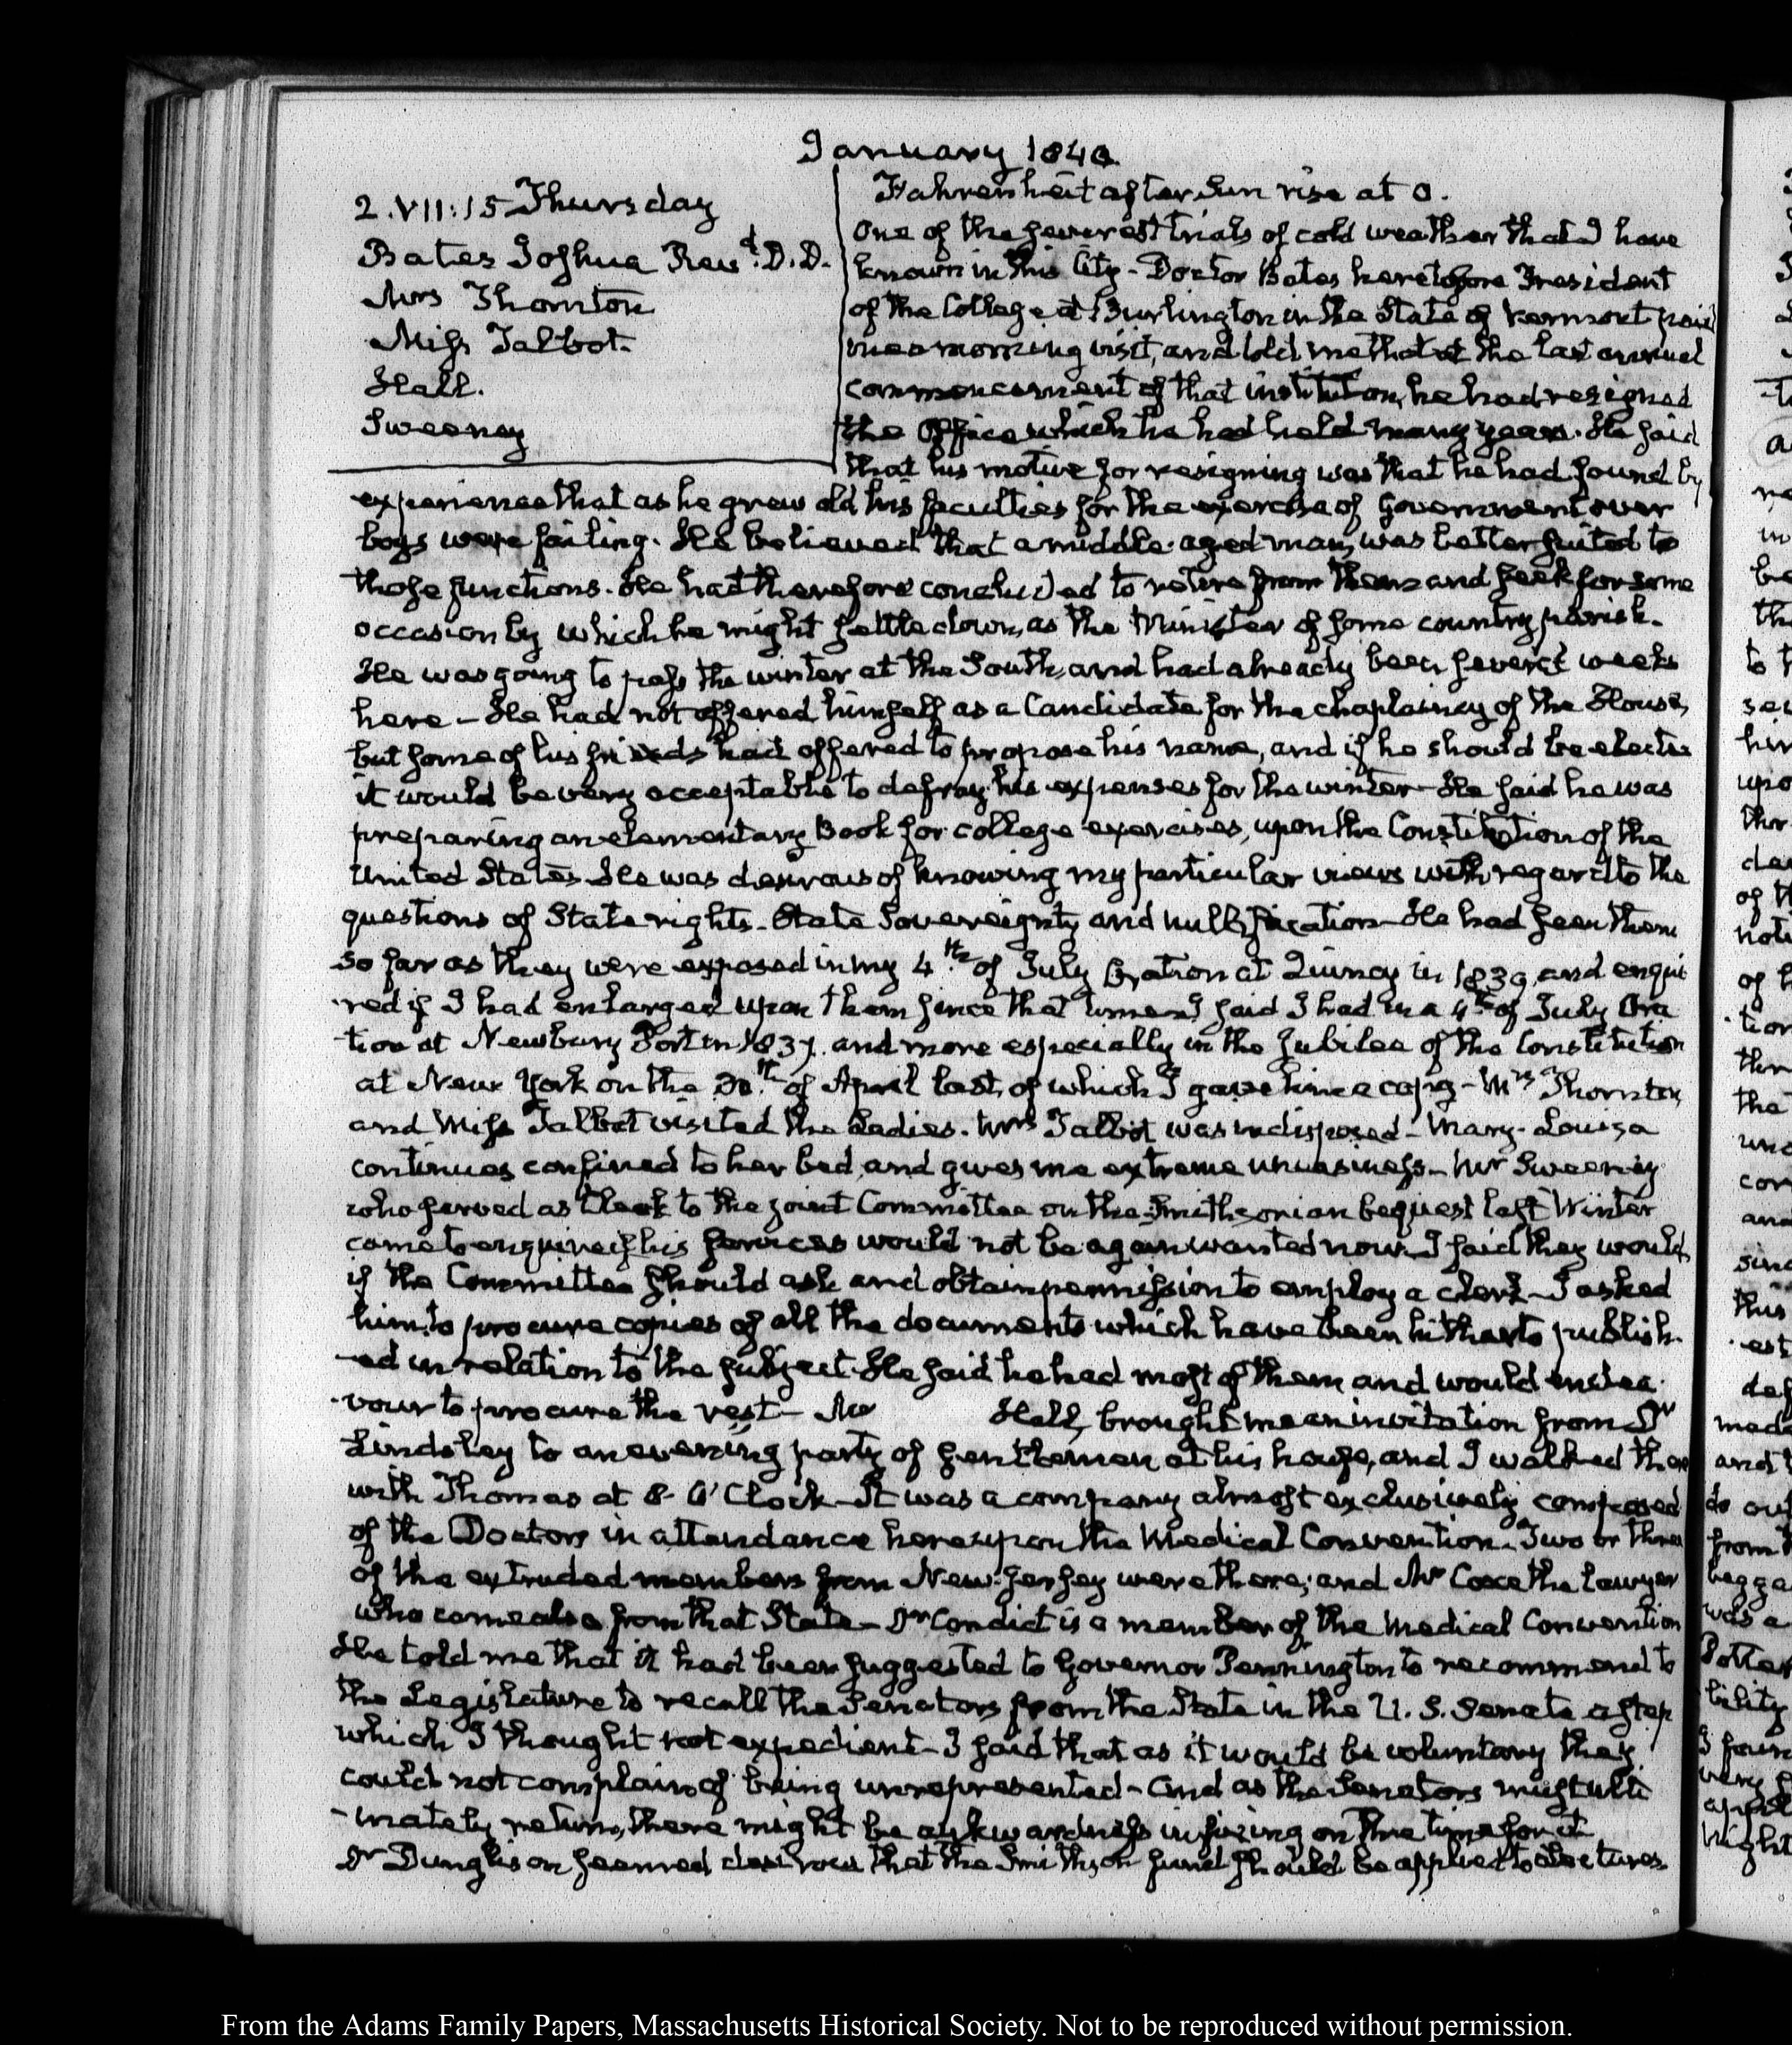 January 1840.
2. VII:15 Thursday
Bates Joshua Revd. D.D.
Mrs Thornton
Miss Talbot.
Hall.
Sweeney
Fahrenheit after Sun rise at 0.
One of the severest trials of cold weather that I have
known in this City - Doctor Bates heretofore President
of the College at Burlington in the State of Vermont paid
me a morning visit, and told me that at the last annual
commencement of that institution, he had resigned
the Office which he had held many years. He said
that his motive for resigning was that he had found by
experience that as he grew old his faculties for the exercise of Government over
boys were failing. He believed that a middle-aged man, was better suited to
those functions. He had therefore concluded to retire from them and seek for some
occasion by which he might settle down, as the Minister of some country parish.
He was going to pass the winter at the South, and had already been several weeks
here - He had not offered himself as a Candidate for the chaplaincy of the House,
but some of his friends had offered to propose his name, and if he should be elected
it would be very acceptable to defray his expenses for the winter - He said he was
preparing an elementary Book for college exercises, upon the Constitution of the
United States. He was desirous of knowing my particular views with regard to the
questions of State rights - State Sovereignty and nullification - He had seen them
so far as they were exposed in my 4th. of July Oration at Quincy in 1831, and enqui
-red if I had enlarged upon them since that time - I said I had in a 4th of July Ora
-tion at Newbury Port in 1837. and more especially in the Jubilee of the Constitution
at New York on the 30th. of April last, of which I gave him a copy - Mrs Thornton,
and Miss Talbot visited the Ladies. Mrs Talbot was indisposed - Mary-Louisa
continues confined to her bed, and gives me extreme uneasiness - Mr Sweeney
who served as Clerk to the joint Committee on the Smithsonian bequest last Winter
came to enquire if his services would not be again wanted now - I said they would,
if the Committee should ask and obtain permission to employ a clerk - I asked
him to procure copies of all the documents which have been hitherto publish-
-ed in relation to the subject. He said he had most of them and would endea-
-vour to procure the rest - Mr Hall, brought me an invitation from Dr
Lindsley to an evening party of gentlemen at his house, and I walked there
with Thomas at 8. O'Clock - It was a company almost exclusively composed
of the Doctors in attendance here upon the Medical Convention. Two or three
of the extruded members from New-Jersey were there; and Mr Coxe the Lawyer
who came also from that State - Dr Condict is a member of the Medical Convention
He told me that it had been suggested to Governor Pennington to recommend to
the Legislature to recall the Senators from the State in the U. S. Senate a step
which I thought not expedient - I said that as it would be voluntary they
could not complain of being unrepresented - And as the Senators must ulti
-mately return, there might be awkwardness in fixing on the time for it
Dr Dunglison seemed desirous that the Smithson fund should be applied to Lectures
From the Adams Family Papers, Massachusetts Historical Society. Not to be reproduced without permission.